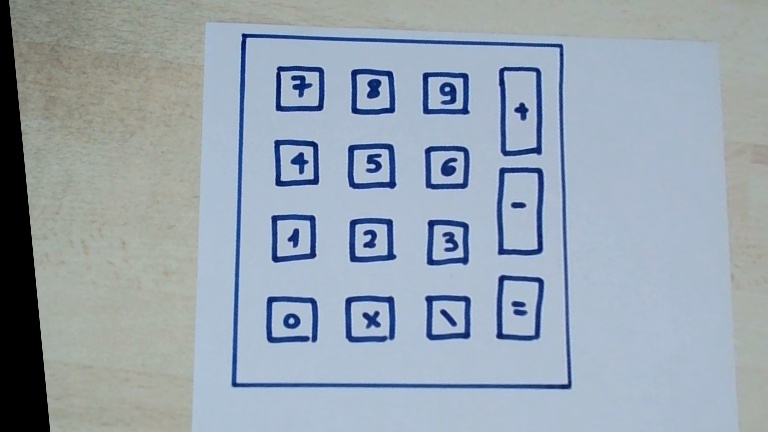 7 8 9 +
4 5 6 -
1 2 3
0 x \ =